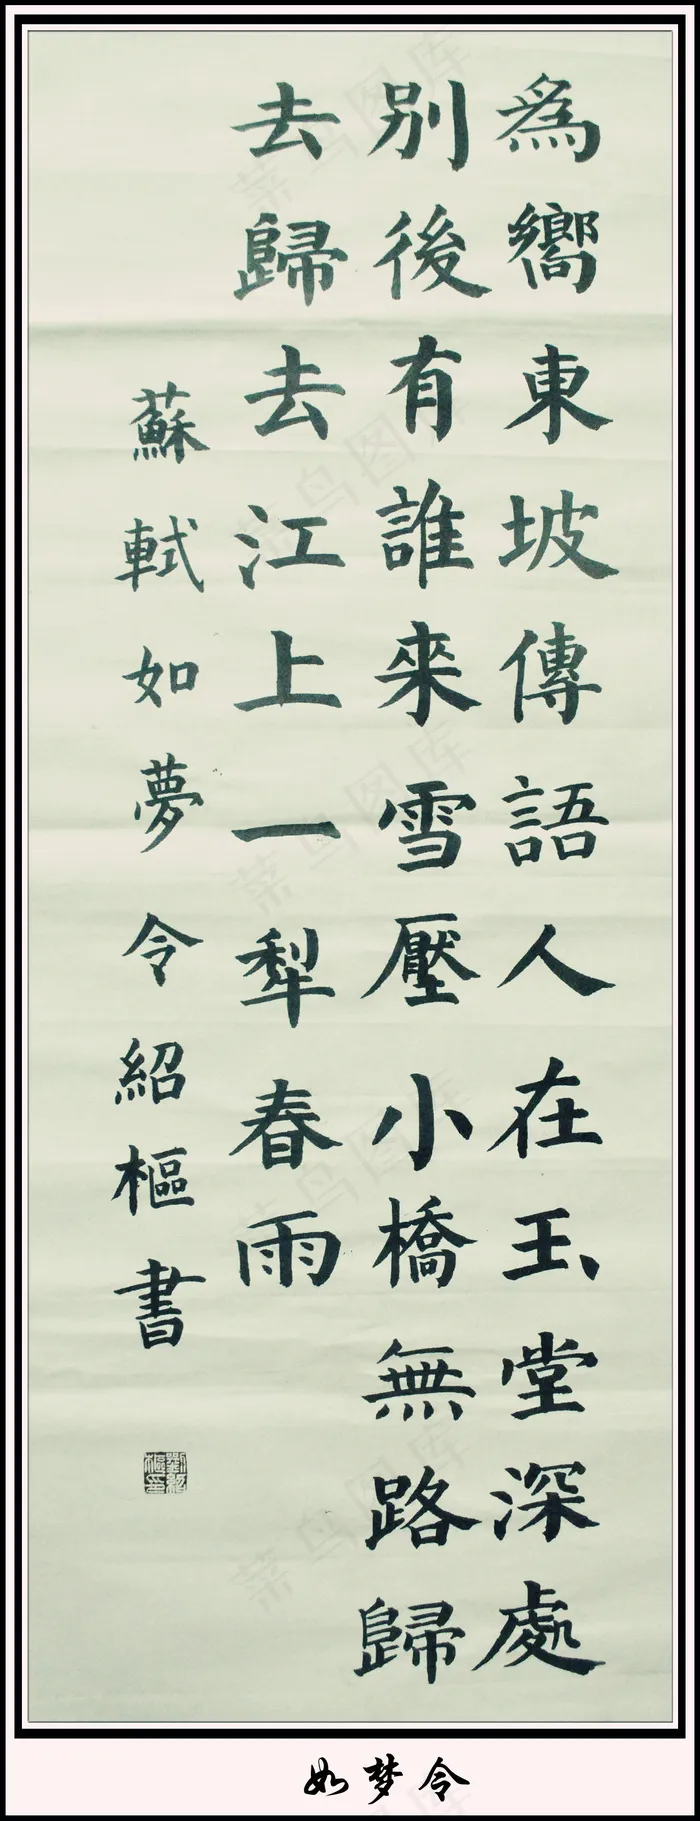 為嚮東坡傳語人在玉堂深處
别後有誰來雪壓小橋無路歸
去歸去江上一犁春雨
蘇軾如夢令紹樞書
劉紹樞印
如梦令
菜鸟图库